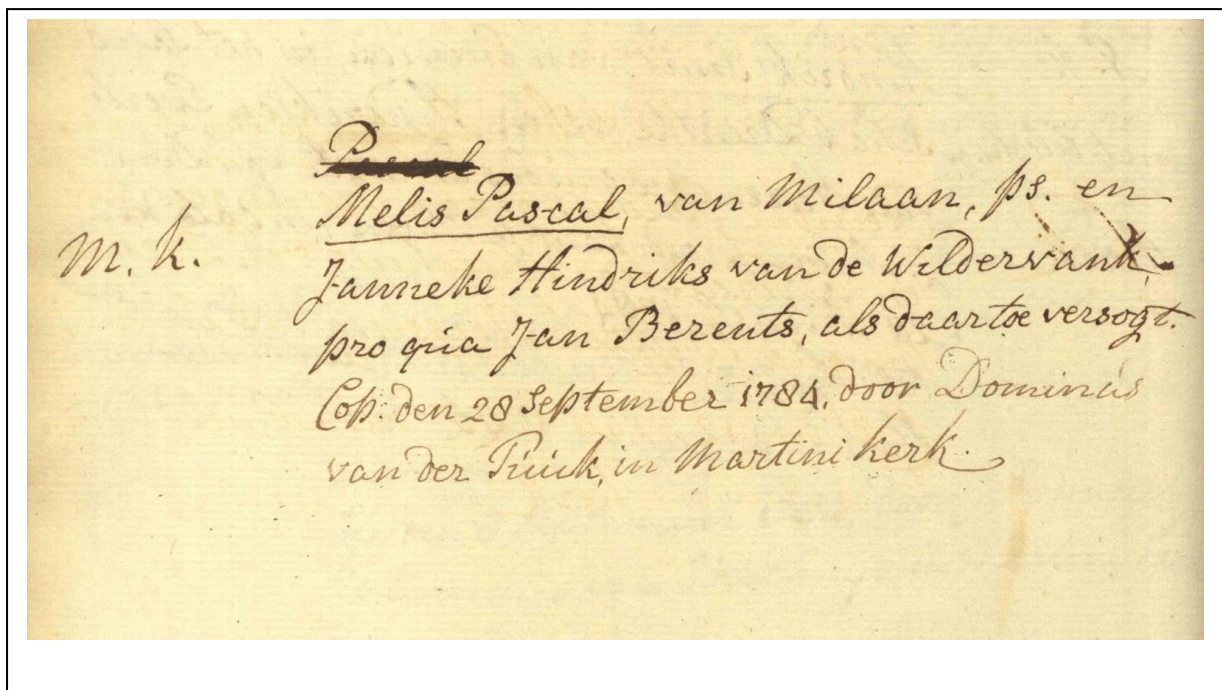 Pascal
Melis Pascal, van Milaan, ps. en
M. k.
Janneke Hindriks van de Wildervank,
pro qua Jan Berents, als daartoe versogt.
Cop. den 28 September 1784, door Dominus
van der Tuuk, in Martini kerk.